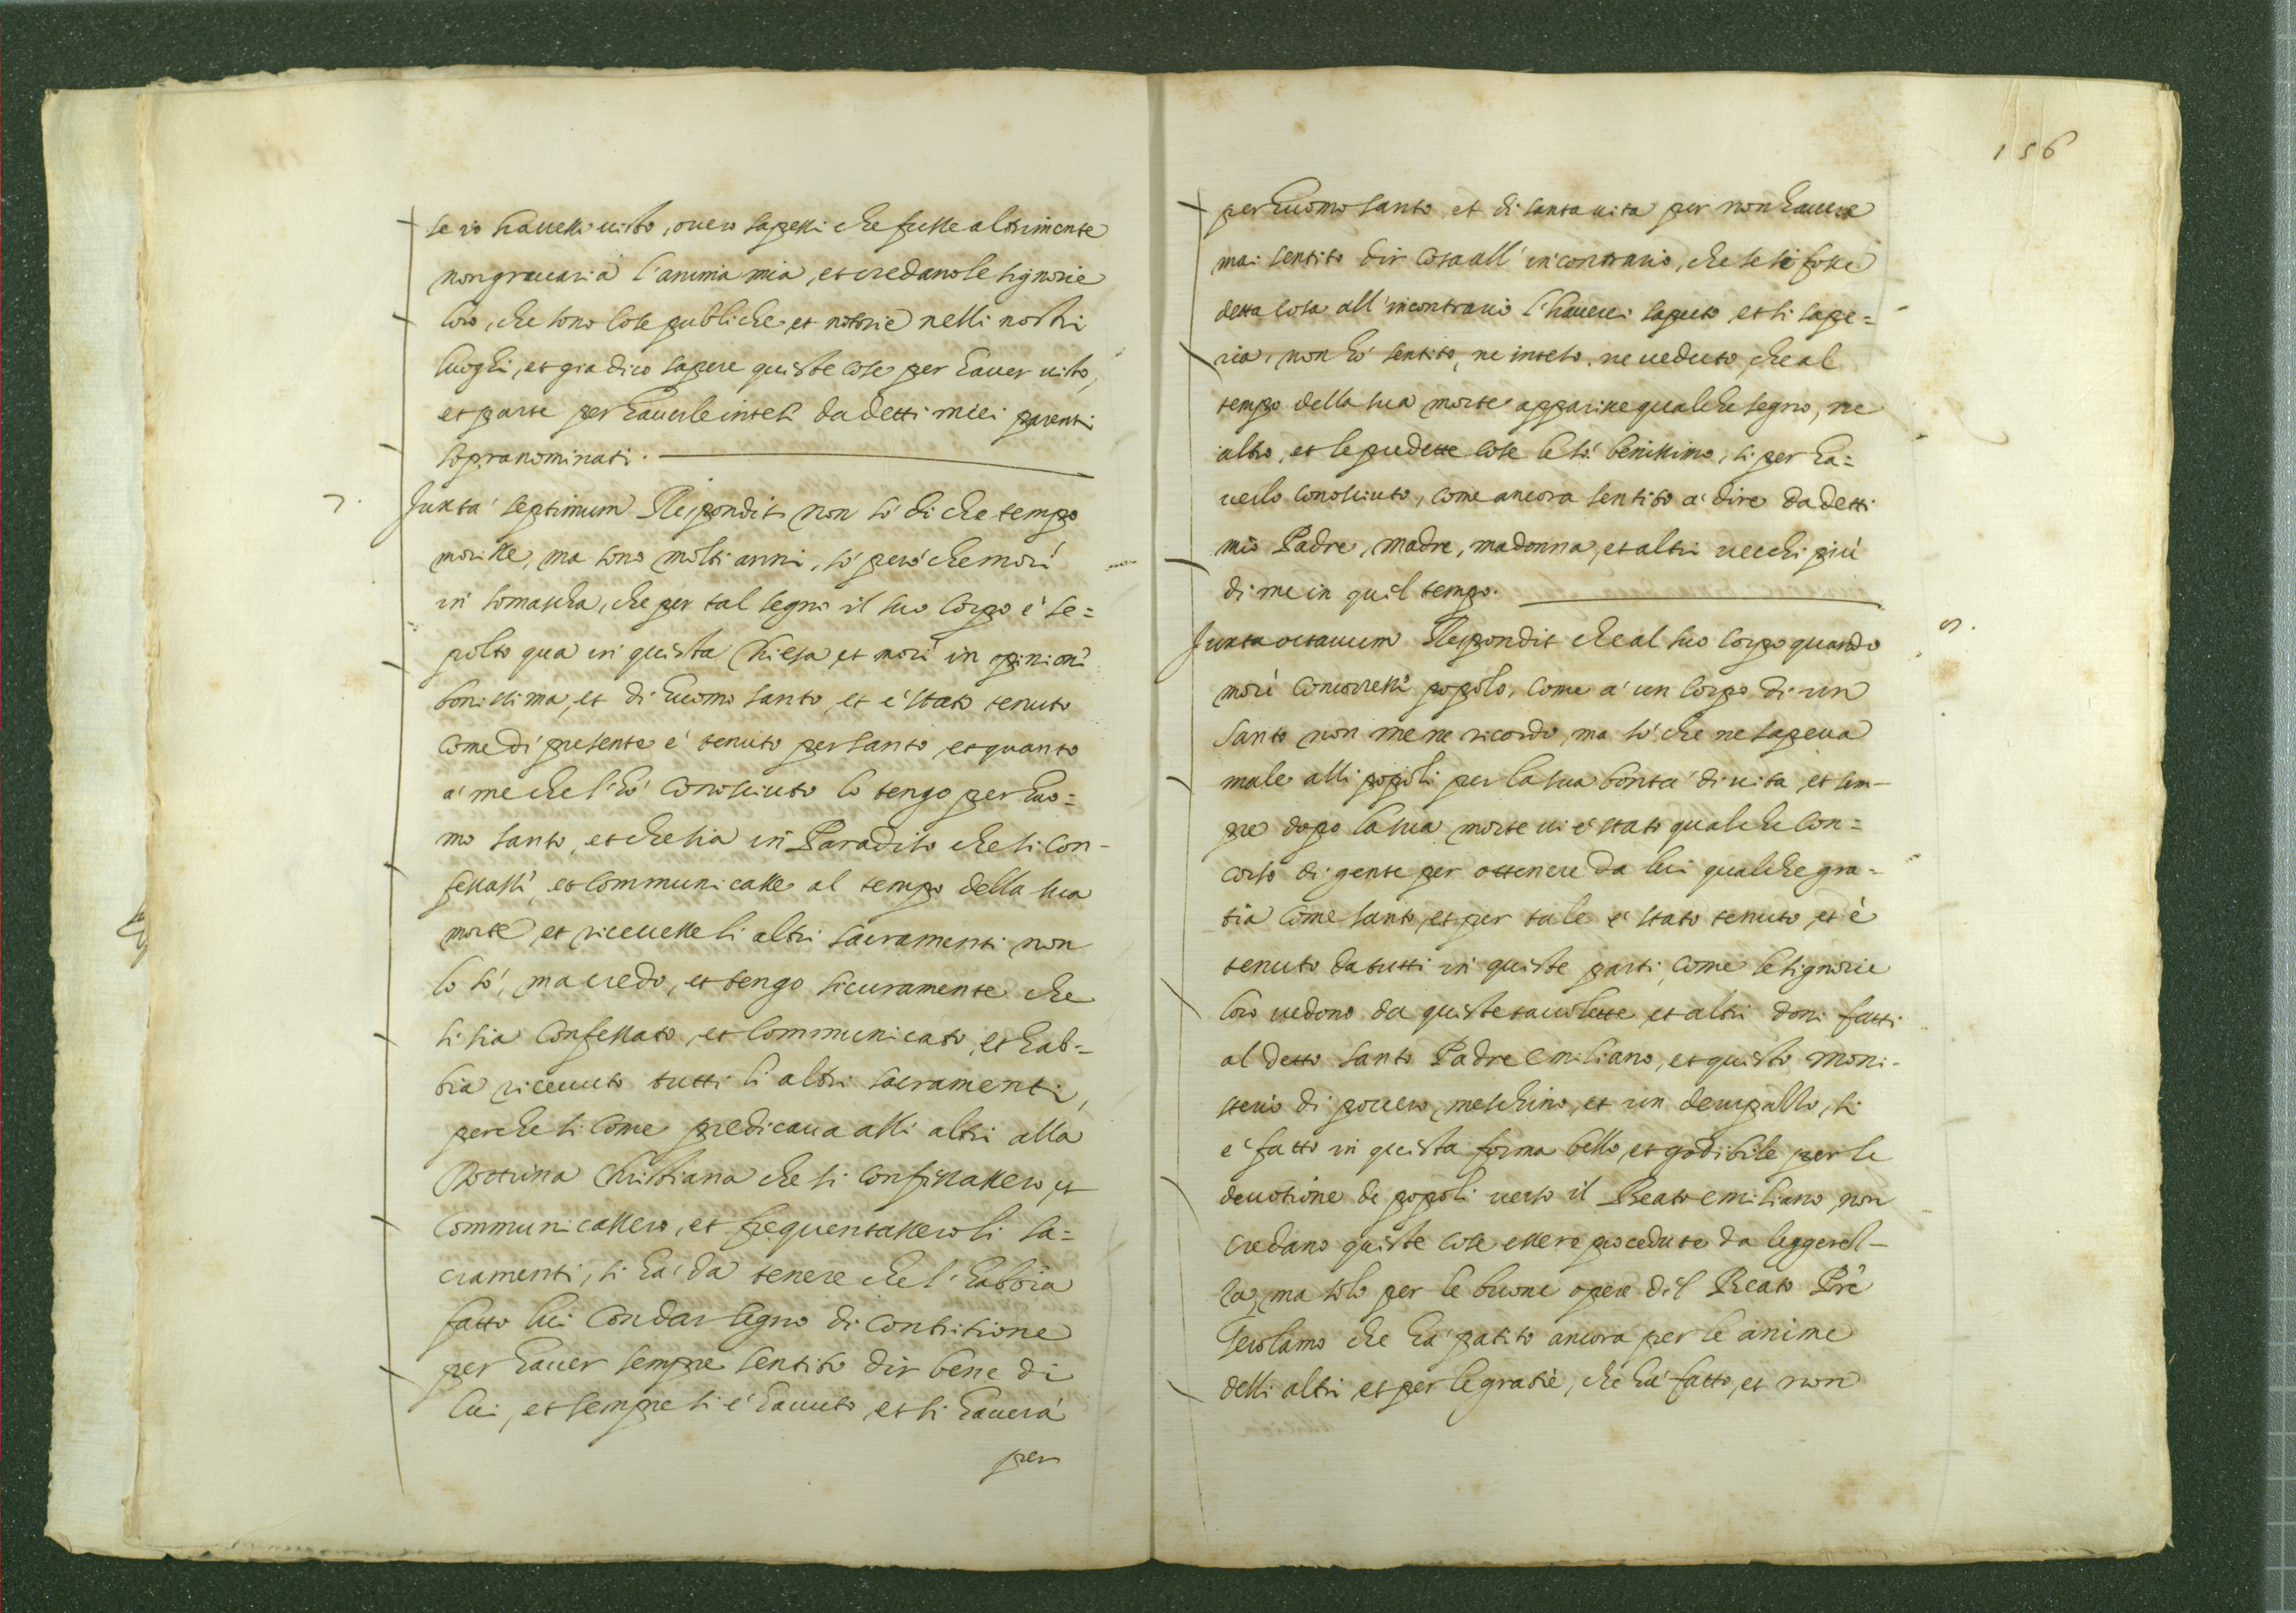 se io hauesse uisto, ouero sapessi che fusse altrimente
non grauaria l'anima mia, et credano le signorie
loro, che sono cose publiche et notorie nelli nostri
luoghi, et gia dico sapere queste cose per hauer uisto,
et parte per hauerle intesi da detti miei parenti
sopranominati.
7. Juxta septimum Respondit non sò di che tempo
morisse, ma sono molti anni, sò però che morì
in somascha, che per tal segno il suo corpo è se=
polto qua in questa Chiesa et morì in opinioni
bonissima, et di huomo santo, et è stato tenuto
come di presente è tenuto per santo, et quanto
à me che l'hò conosciuto lo tengo per huo=
mo santo, et che sia in Paradiso che si con-
fessassi, et communicasse al tempo della sua
morte et riceuesse li altri sacramenti non
lo sò, ma credo, et tengo sicuramente che
si sia confessato, et communicato, et hab=
bia riceuuto tutti li altri sacramenti,
perche si come predicaua alli altri alla
Dottrina Christiana che si confessassero, et
communicassero, et frequentassero li sa=
cramenti, si hà da tenere che l'habbia
fatto lui con dar segno di contritione
per hauer sempre sentito dir bene di
lui, et sempre si è hauuto, et si hauerà
per
156
per huomo santo, et di santa uita per non hauere
mai sentito dir cosa all'incontrario, che se si fosse
detta cosa all'incontrario l'hauerei saputo et si sape=
ria, non hò sentito, ne inteso, ne ueduto, che al
tempo della sua morte apparisse qualche segno, ne
altro, et le predette cose le sò benissimo, si per ha=
uerlo conosciuto, come ancora sentito à dire da detti
mio Padre, madre, madonna, et altri uecchi più
di me in quel tempo.
Juxta octauum Respondit che al suo corpo quando
morì concorressi popolo, come à un corpo di un
santo non me ne ricordo, ma sò che ne sapeua
male alli popoli per la sua bontà di uita, et sem-
pre dopo la sua morte ui è stato qualche con=
corso di gente per ottenere da lui qualche gra=
tia come santo, et per tale è stato tenuto, et è
tenuto da tutti in queste parti, come le signorie
loro uedono da queste tauolette et altri doni fatti
al detto santo Padre emiliano, et questo moni-
sterio di pouero, meschino, et un si
è fatto in questa forma bello, et godibile per le
deuotione de popoli uerso il Beato emiliano, non
credano queste cose essere procedute da leggerez-
za, ma solo per le buone opere del Beato Pre
Gerolamo che hà patito ancora per le anime
delli altri et per le gratie, che hà fatto, et non